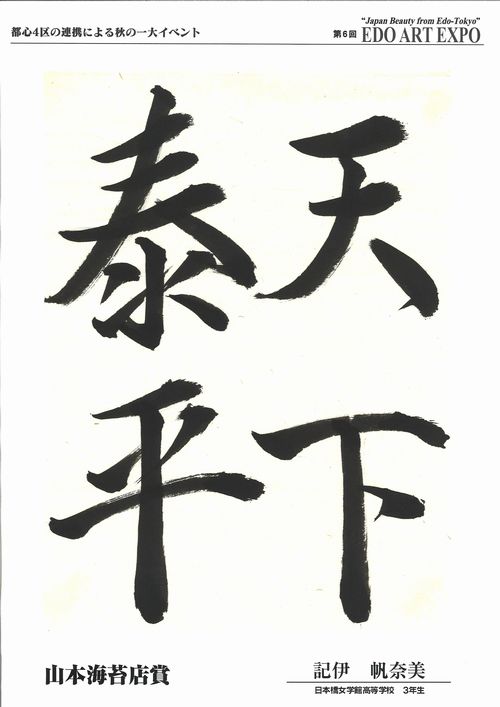 都心4区の連携による秋の一大イベント
"Japan Beauty from Edo-Tokyo"
第6回 EDO ART EXPO
天下
泰平
山本海苔店賞
記伊 帆奈美
日本橋女学館高等学校 3年生